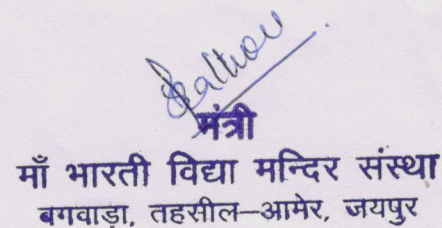 मंत्री
माँ भारती विद्या मन्दिर संस्था
बगवाड़ा, तहसील–आमेर, जयपुर